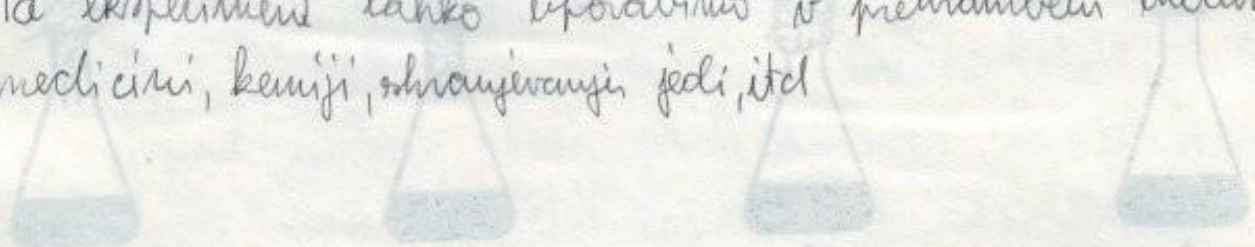 Ta eksperiment lahko uporabimo v prehrambeni
medicini, kemiji, shranjevanju jedi, itd